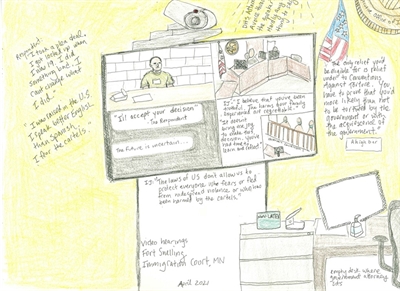 Respondent:
I took a plea deal.
I got locked up when
I was 19. I did
something bad. I
can't undo what
I did.
I was raised in the U.S.
I speak better English
than Spanish.
I fear the cartels.
"I'll accept your decision"
- The Respondent
The future is uncertain...
IJ: "I believe that you've been
The harms your family
experienced are regrettable."
"It doesn't
bring me joy
to make that
decision. You've
had time to
learn and reflect"
IJ: "The laws of US don't allow us to
protect everyone who fears or fled
from violence or who has
been harmed by the cartels."
"The only relief you'd
be eligible for is relief
under the Convention
Against Torture. You
have to prove that you'd
more likely than not
be tortured by the
government or with
the acquiescence of
the government."
Video hearings
Fort Snelling
Immigration Court, MN
April 2021
empty desk where
government attorney
sits